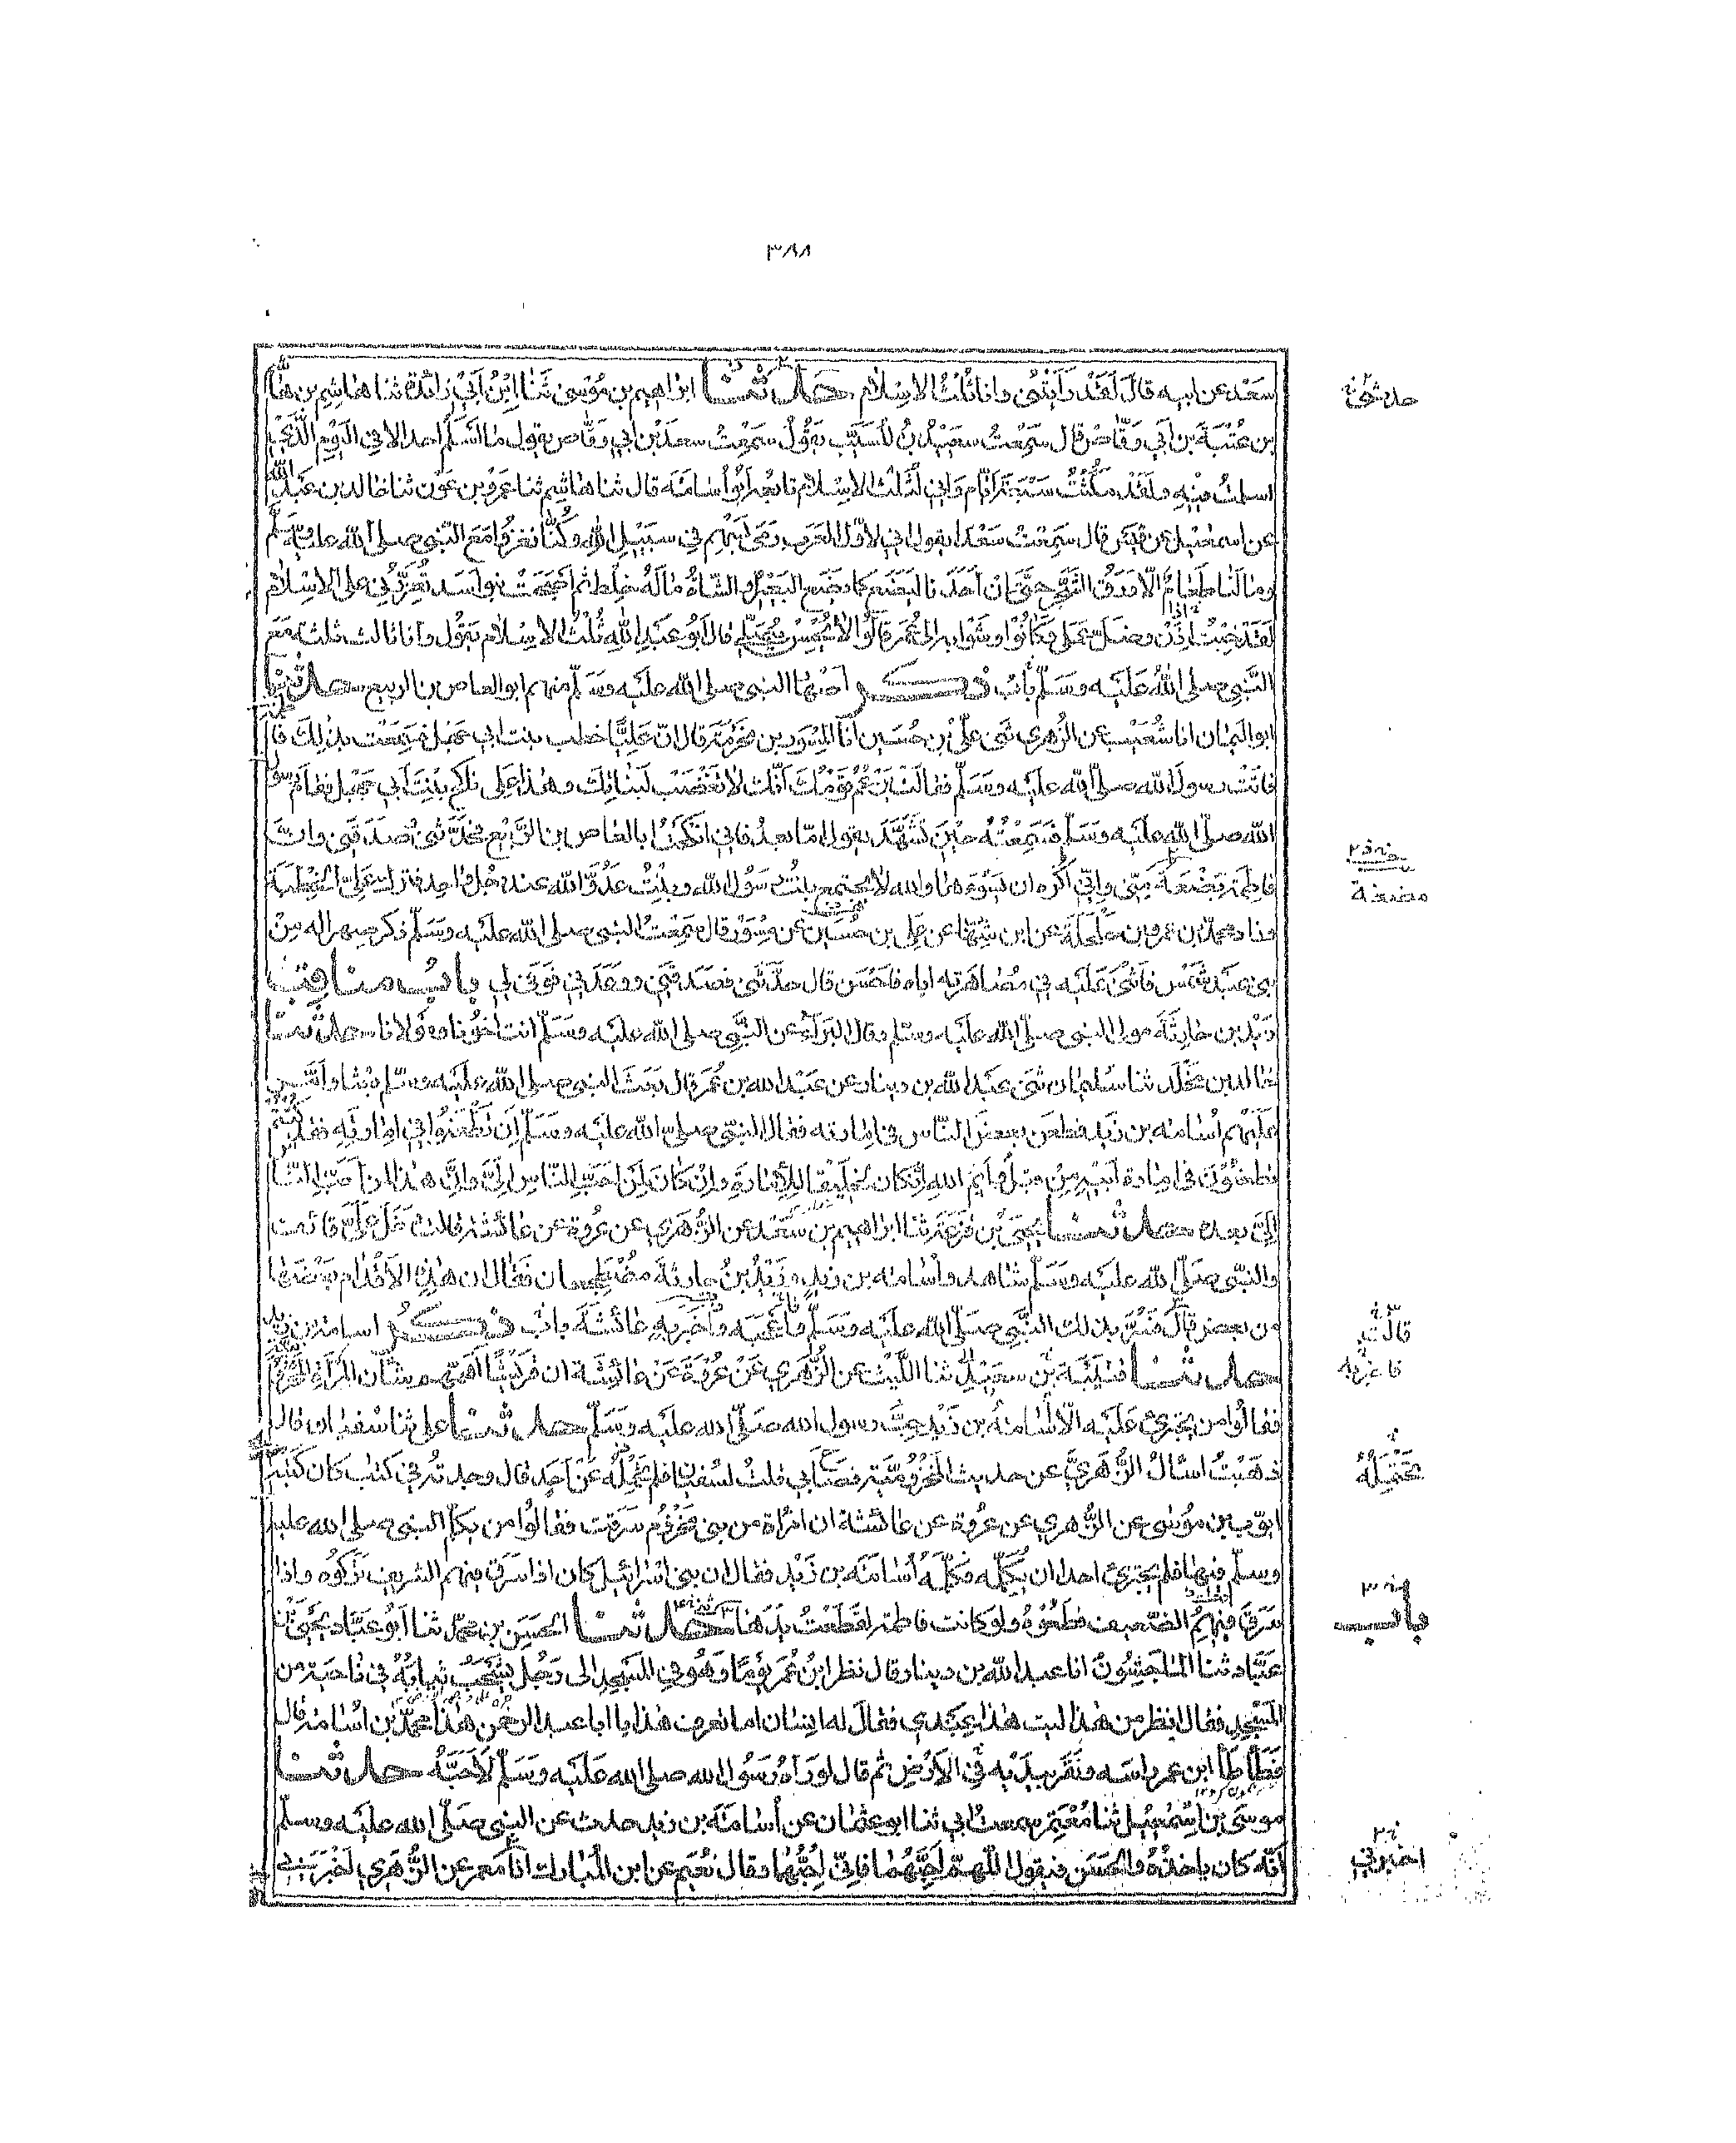 ٣٨٨
سَعْد عن ابيه قالَ لَقَدْ رَأَيْتُنِي وانا ثُلُثُ الاسْلام حدثنا ابراهيم بن مُوسى ثَنا ابْنُ اَبِي زائِدة ثنا هاشم بن هاشم
بن عُتْبَةَ بن اَبي وَقَّاص قال سَمِعْتُ سعيدَ بْنَ المُسَيّبِ يَقُولُ سَمِعْتُ سعدَ بْنَ ابي وَقّاص يقول ما اَسْلَم احد الا في اليَوْمِ الَّذي
اسلمتُ فيه ولقَدْ مَكُثْتُ سَبْعَةَ اَيّام وَاِنّي لَثُلُثُ الاِسْلام تابعه اَبُو اُسامَة قال ثنا هاشِم ثنا عَمْرُو بن عَوْن ثنا خالد بن عبد الله
عن اسمعيل عن قَيْس قال سَمِعْتُ سَعْدًا يقول اني لاوّل العَرَب رمى بِسَهْم في سَبِيْلِ الله وكُنّا نَغْزُو مَعَ النّبي صلى الله عليه وسلّم
وما لَنا طَعامٌ الّا وَرَقُ الشَّجَر حتَّى اِنّ اَحَدَنا لَيَضَعُ كما يَضَعُ البَعِيْرُ او الشّاةُ مالَهُ خِلْط ثم اَصْبَحَتْ بنو اَسَد تُعَزِّرُني على الاِسْلام
لَقَدْ خِبْتُ اِذَنْ وضلّ عملي وكانُوا وشَوْا به الى عُمَر قالُوا لا يُحْسِنُ يُصَلّي قال اَبُو عَبْدِ الله ثُلُثُ الاسلام يَقُول وانا ثالث ثلثة مَعَ
النّبي صلى اللهُ عَلَيْه وسَلّم بابُ ذكر اَصْهار النبي صلى الله عليه وسَلّم منهم ابو العاص بن الربيع حدثنا
ابو اليمان انا شُعَيْب عن الزُّهري ثنى عليُّ بن حُسَيْن اَنّ المِسْوَر بن مَخْرَمَة قال انّ عَلِيًّا خطب بنت ابي جهل فسَمِعَتْ بذلك فاطمة
فاتَتْ رسولَ الله صلّى الله عليه وسَلّم فقالَتْ يَزْعُمُ قَوْمُكَ اَنَّكَ لا تَغْضَبُ لبَناتِكَ وهذا عَلِي ناكح بِنْتَ اَبي جهْل فقام رسول
الله صلّى الله علَيْه وسَلّم فسَمِعْتُهُ حِيْنَ تَشَهَّدَ يقول امّا بعدُ فاني انكَحْتُ ابا العاص بن الرَّبيْع فحدَّثني وصَدَقَني وانّ
فاطِمَة بَضْعَة مِنّي وانّي اَكْرَه ان يَسُوْءَها والله لا تجتمع بِنْتُ رَسُوْلِ الله وبِنْتُ عَدُوِّ الله عند رَجُل واحِد فترك عليّ الخِطْبَة
وزاد محمد بن عمرو بن حَلْحَلَة عن ابن شهاب عن علي بن حُسَيْن عن مِسْوَر قال سَمِعْتُ النبي صلى الله عليه وسَلّم ذكر صِهرا له مِنْ
بني عَبْدِ شَمْس فاَثْنى عَلَيْه في مُصاهَرَته اياه فاَحْسَن قال حدَّثني فصَدَقَني ووعَدَني فَوَفى لي بابُ مناقِبُ
زَيْد بن حارِثَةَ مولى النبي صلّى الله عليْه وسلم وقال البَراءُ عن النّبي صلى الله عليه وسَلّم انت اخُوْنا ومَوْلانا حدثنا
خالد بن مَخْلَد ثنا سُليمان ثنى عَبْدُ الله بن دينار عن عَبْد الله بن عُمَر قال بَعَثَ النبي صلى الله عليه وسلّم بَعْثا واَمَّر
عَلَيْهِم اُسامة بن زَيْد فطعن بعضُ النّاس في اِمارته فقال النبي صلى الله عليه وسَلّم اِنْ تَطْعَنُوا في امارتِه فقد كُنْتُم
تَطْعَنُوْنَ في امارة اَبيْهِ مِنْ قبلُ واَيْمُ اللهِ اِنْ كان لخليقًا للاِمارَةِ واِنْ كانَ لَمِنْ اَحَبِّ النّاس اِلَيَّ واِنَّ هذا لمن اَحَبّ النّاس
اِلَيَّ بعده حدثنا يَحيى بْن قَزَعَة ثنا ابراهيم بن سَعْد عن الزُّهْري عن عُروة عن عائشة قالت دَخَلَ عَلَيَّ قائف
والنبي صلّى الله عليه وسَلّم شاهد واُسامة بن زيد وزَيْدُ بْنُ حارثة مُضْطَجِعان فقال ان هذِهِ الاَقْدامَ بَعْضُها
من بعض قالَ فسُرَّ بذلك النّبي صلّى الله عليه وسَلّم واَعْجَبَه واَخْبَرَ بِهِ عائشَةَ بابُ ذكر اسامة بن زيد
حدثنا قُتَيْبَة بن سعيد ثنا اللَّيْث عن الزُّهري عَنْ عُرْوَة عَنْ عائشَة ان قُرَيْشًا اَهَمّهم شأن المَرْأة المخزومية
فقالُوا من يجترئ عَلَيْه الّا اُسامَةُ بن زَيْد حِبُّ رسول الله صلّى الله عليه وسَلّم حدثنا علي ثنا سُفيان قال
ذهَبْتُ اسْألُ الزُّهْريَّ عن حديث المخْزُوْمِيَّة فصاحَ بي قلتُ لسُفيان فلم تحْمِلْه عَنْ اَحَد قال وجدتُه في كتاب كان كتبَه
ايّوب بن مُوسى عن الزُّهري عن عُروة عن عائشة ان امْرَاَة من بني مَخْزُوْم سَرَقَت فقالُوا من يكلّم النبي صلى الله عليه
وسلّم فيها فلم يجترئ احد ان يُكَلِّمه فكَلَّمَهُ اُسامَة بن زَيْد فقال ان بني اسْرائيل كان اذا سَرَق فيهم الشريف تَرَكُوْه واذا
سَرَقَ فيهِمُ الضّعيف قطَعُوْهُ ولو كانت فاطمة لقَطَعْتُ يَدَها حدثنا الحَسَن بن محمد ثنا اَبُو عَبّاد يحيَى بن
عَبّاد ثنا الماجِشُوْن انا عبد الله بن دينار قال نظر ابْنُ عُمَر يَوْمًا وهُو في المَسْجِد الى رَجُل يَسْحَبُ ثيابَهُ في ناحية من
المَسْجِد فقال انظر من هذا ليت هذا عِندي فقالَ له اِنسان اما تعرف هذا يا ابا عبد الرحمن هذا محمّد بن اُسامة قال
فطَأْطَأ ابن عمر راسَه ونَقَر بيدَيْه في الاَرْض ثم قال لو رَآهُ رَسُوْلُ الله صلى الله علَيْه وسَلّم لاَحَبَّهُ حدثنا
موسى بن اسْمعيل ثنا مُعْتَمِر سمعتُ ابي ثنا ابو عثمان عن اُسامَة بن زيد حدث عن النبي صلّى الله عليه وسلم
اَنّه كان ياخذُهُ والحَسَن فيقول اللّهمّ اَحِبَّهُما فانّي اُحِبُّهُما وقال نُعَيم عن ابن المبارك انا معمر عن الزُّهري اَخْبَرني
حدثني
مضغة
قالت
فاعجبه
تحتمله
باب
اخبرني